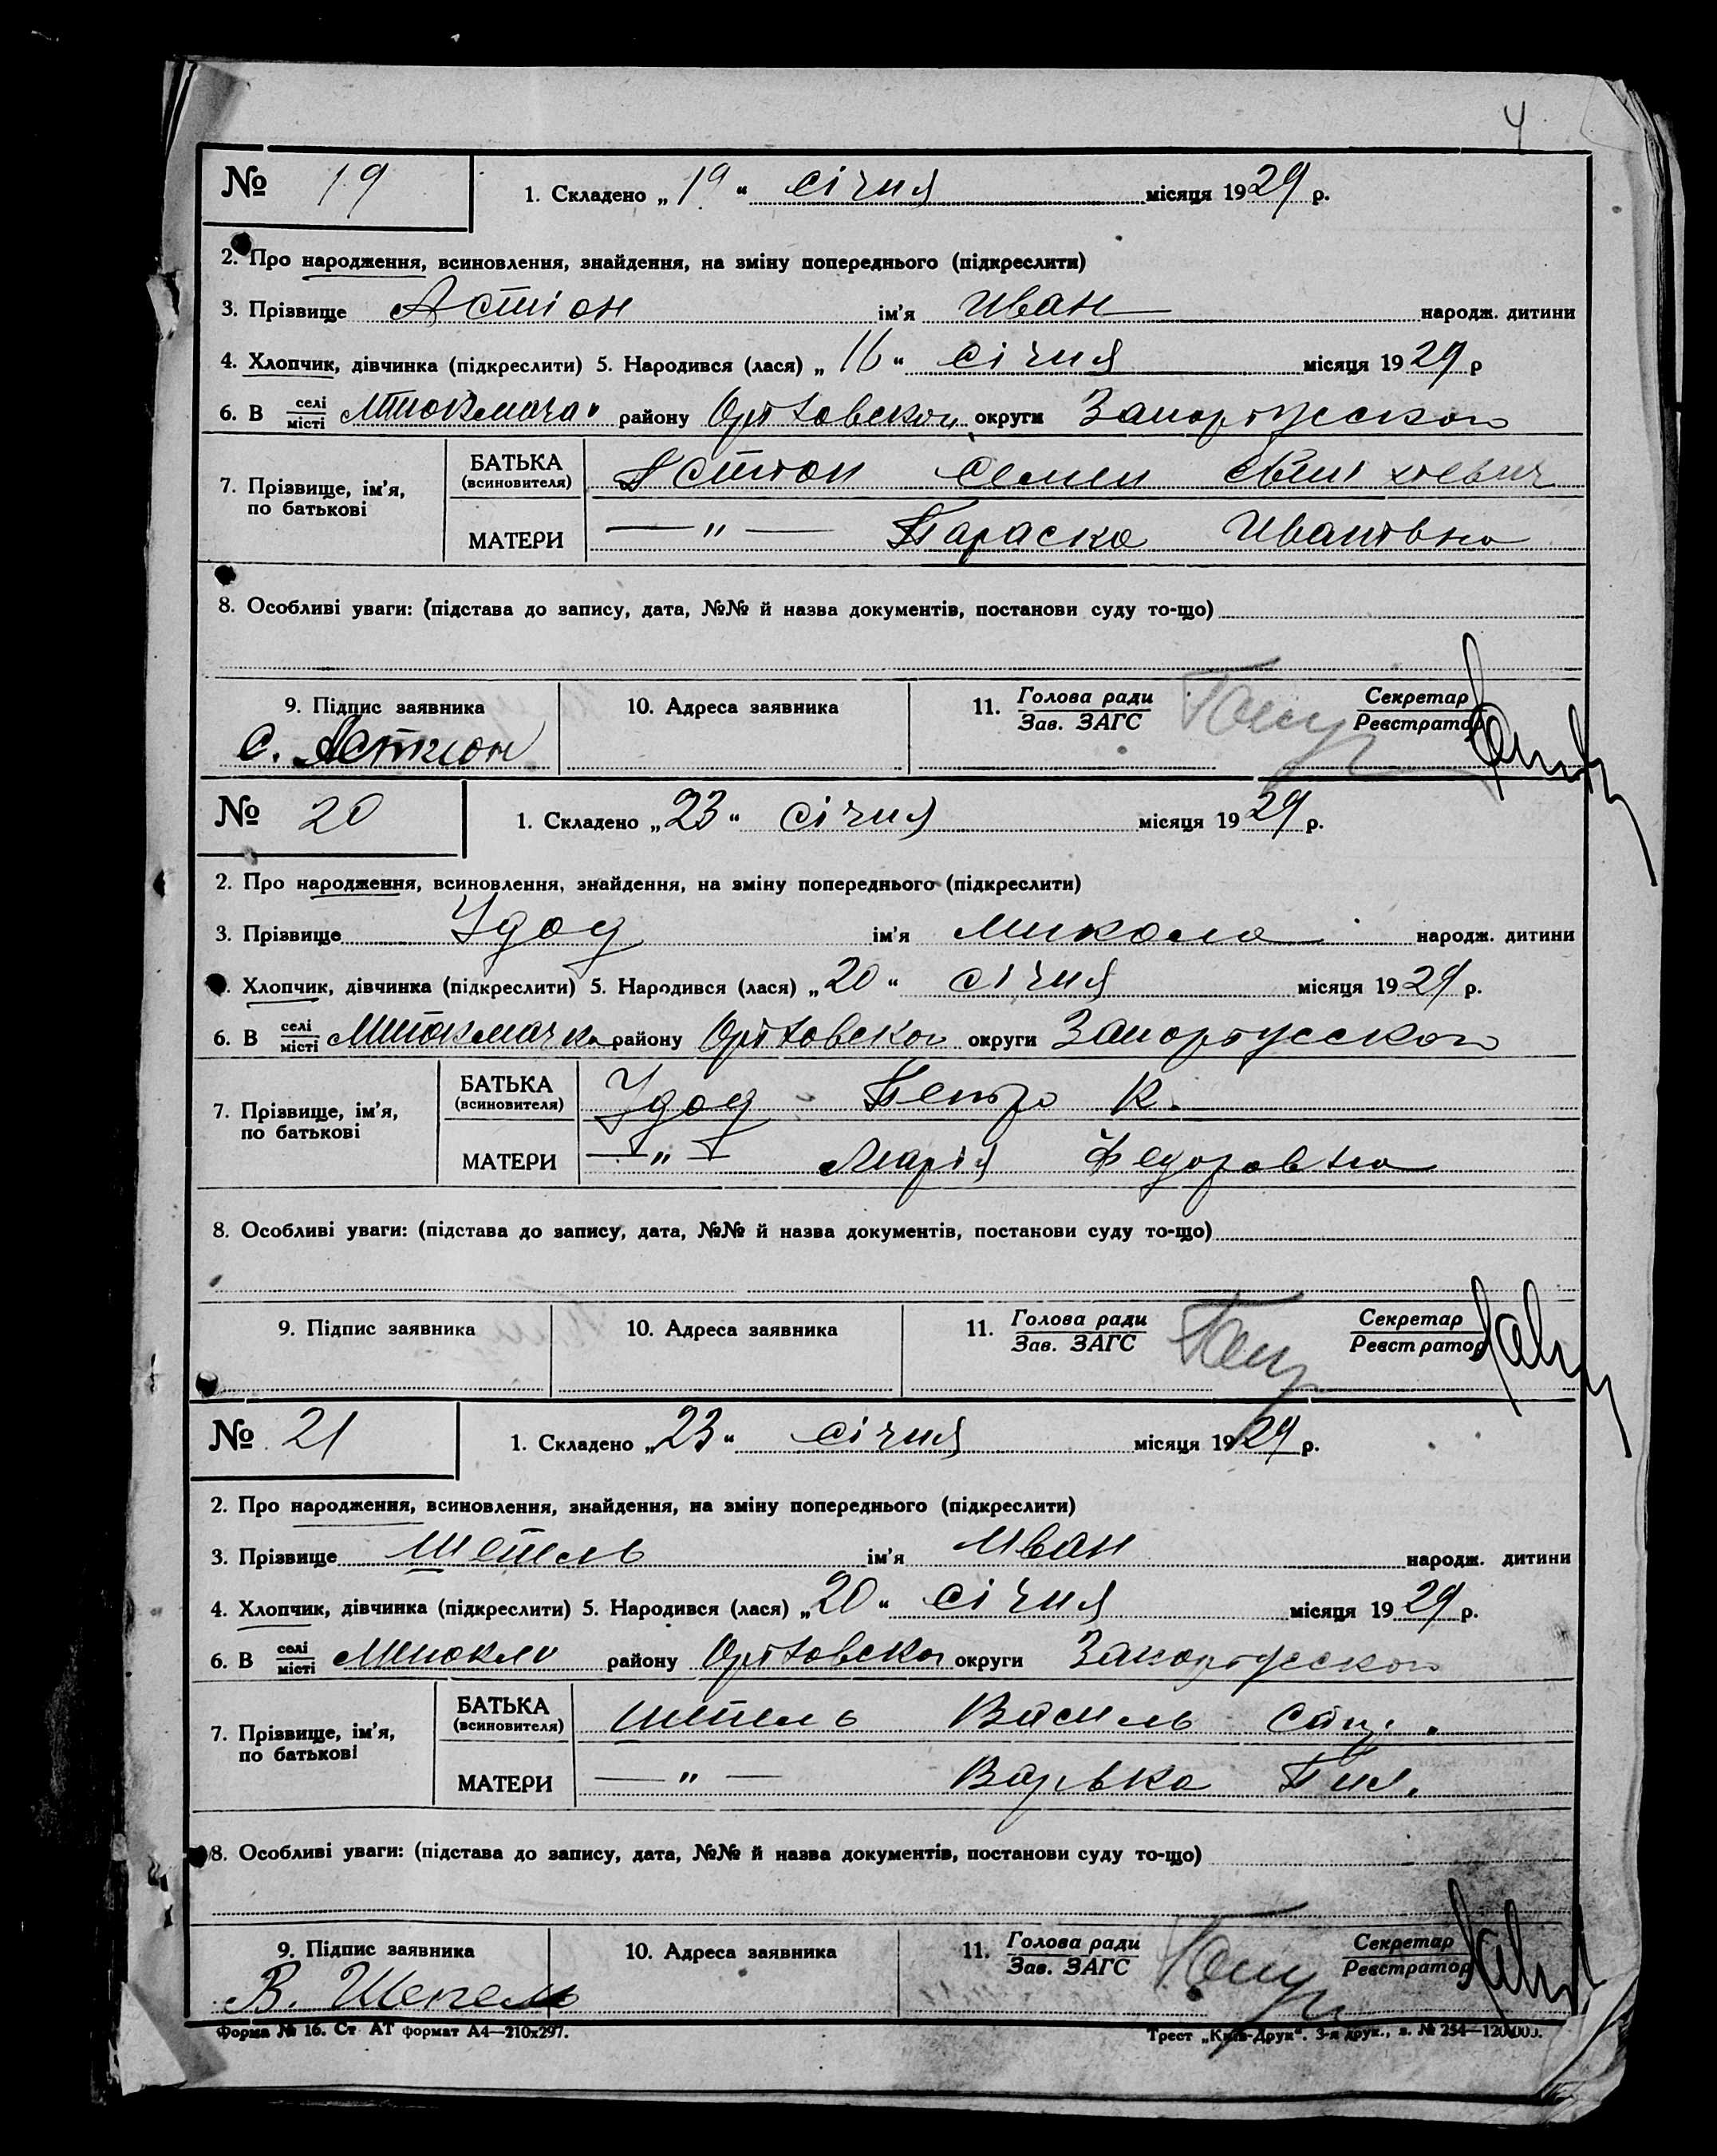 4
№ 19 1. Складено „19“ січня місяця 1929 р.
2. Про народження, всиновлення, знайдення, на зміну попереднього (підкреслити)
3. Прізвище Астіон ім'я Иван народж. дитини
4. Хлопчик, дівчинка (підкреслити) 5. Народився (лася) „16“ січня місяця 1929 р
6. В селі/місті району округи
7. Прізвище, ім'я, по батькові
БАТЬКА (всиновителя) Астион Семен
МАТЕРИ —"— Параска Ивановна
8. Особливі уваги: (підстава до запису, дата, №№ й назва документів, постанови суду то-що)
9. Підпис заявника 10. Адреса заявника 11. Голова ради/Зав. ЗАГС Секретар/Реєстратор
С. Астион
№ 20 1. Складено „23“ січня місяця 1929 р.
2. Про народження, всиновлення, знайдення, на зміну попереднього (підкреслити)
3. Прізвище Удод ім'я Микола народж. дитини
. Хлопчик, дівчинка (підкреслити) 5. Народився (лася) „20“ січня місяця 1929 р.
6. В селі/місті району округи
7. Прізвище, ім'я, по батькові
БАТЬКА (всиновителя) Удод Петро К.
МАТЕРИ —"— Марія Федоровна
8. Особливі уваги: (підстава до запису, дата, №№ й назва документів, постанови суду то-що)
9. Підпис заявника 10. Адреса заявника 11. Голова ради/Зав. ЗАГС Секретар/Реєстратор
№ 21 1. Складено „23“ січня місяця 1929 р.
2. Про народження, всиновлення, знайдення, на зміну попереднього (підкреслити)
3. Прізвище Шепель ім'я Иван народж. дитини
4. Хлопчик, дівчинка (підкреслити) 5. Народився (лася) „20“ січня місяця 1929 р.
6. В селі/місті району округи
7. Прізвище, ім'я, по батькові
БАТЬКА (всиновителя) Шепель Василь
МАТЕРИ —"— Варька
8. Особливі уваги: (підстава до запису, дата, №№ й назва документів, постанови суду то-що)
9. Підпис заявника 10. Адреса заявника 11. Голова ради/Зав. ЗАГС Секретар/Реєстратор
В. Шепель
Форма № 16. Ст АТ формат А4—210х297. Трест „Київ-Друк“. 3-я друк., з. № 254—120000.